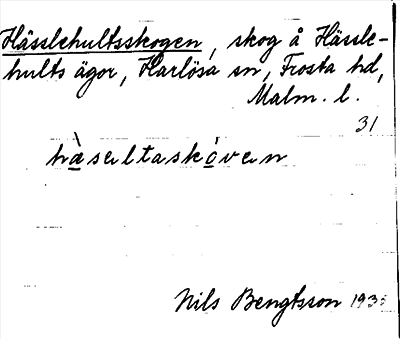 Hässlehultsskogen, skog å Hässle-
hults ägor, Harlösa sn, Frosta hd,
Malm. l.
31
hàseltaskóven
Nils Bengtsson